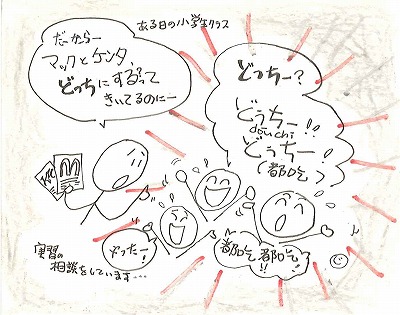 ある日の小学生クラス
だーかーらー
マックとケンタ、
どっちにする?って
きいてるのにー
どっちー?
どぅちー!!
dōuchī
どぅちー!
(都吃)
KFC
やったー!
都吃都吃!!
実習の
相談をしています…